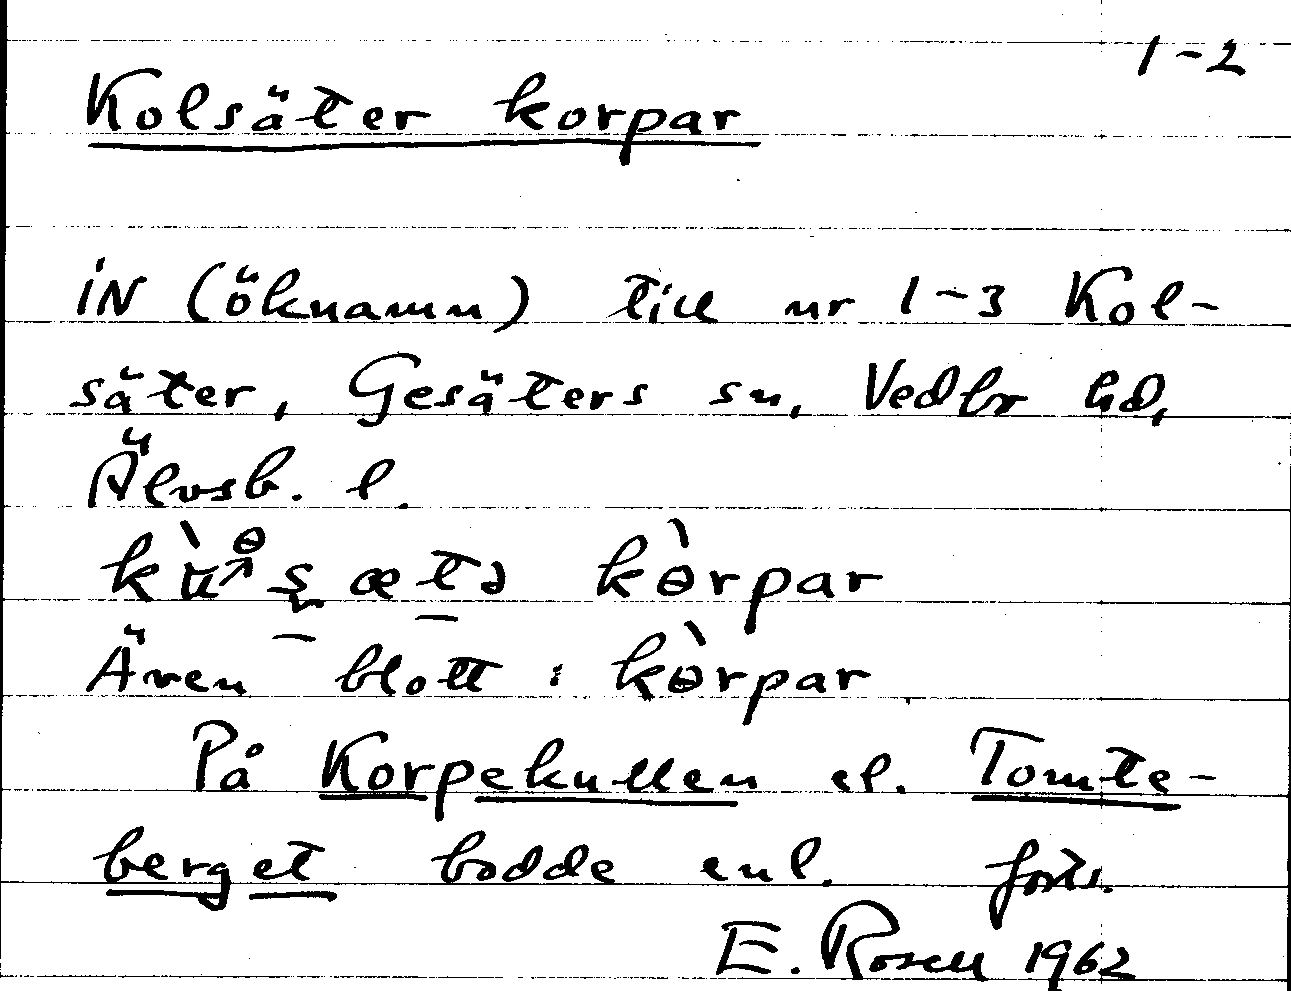 1-2
Kolsäter korpar
iN (öknamn) till nr 1-3 Kol-
säter, Gesäters sn, Vedbr hd,
Älvsb. l.
kɵ̀rpar
Även blott: kɵ̀rpar
På Korpekullen el. Tomte-
berget bodde enl. forts.
E. Rosell 1962